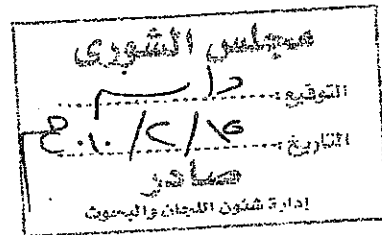 مجلس الشورى
التوقيع :
التاريخ :
صادر
إدارة شئون اللجان والبحوث